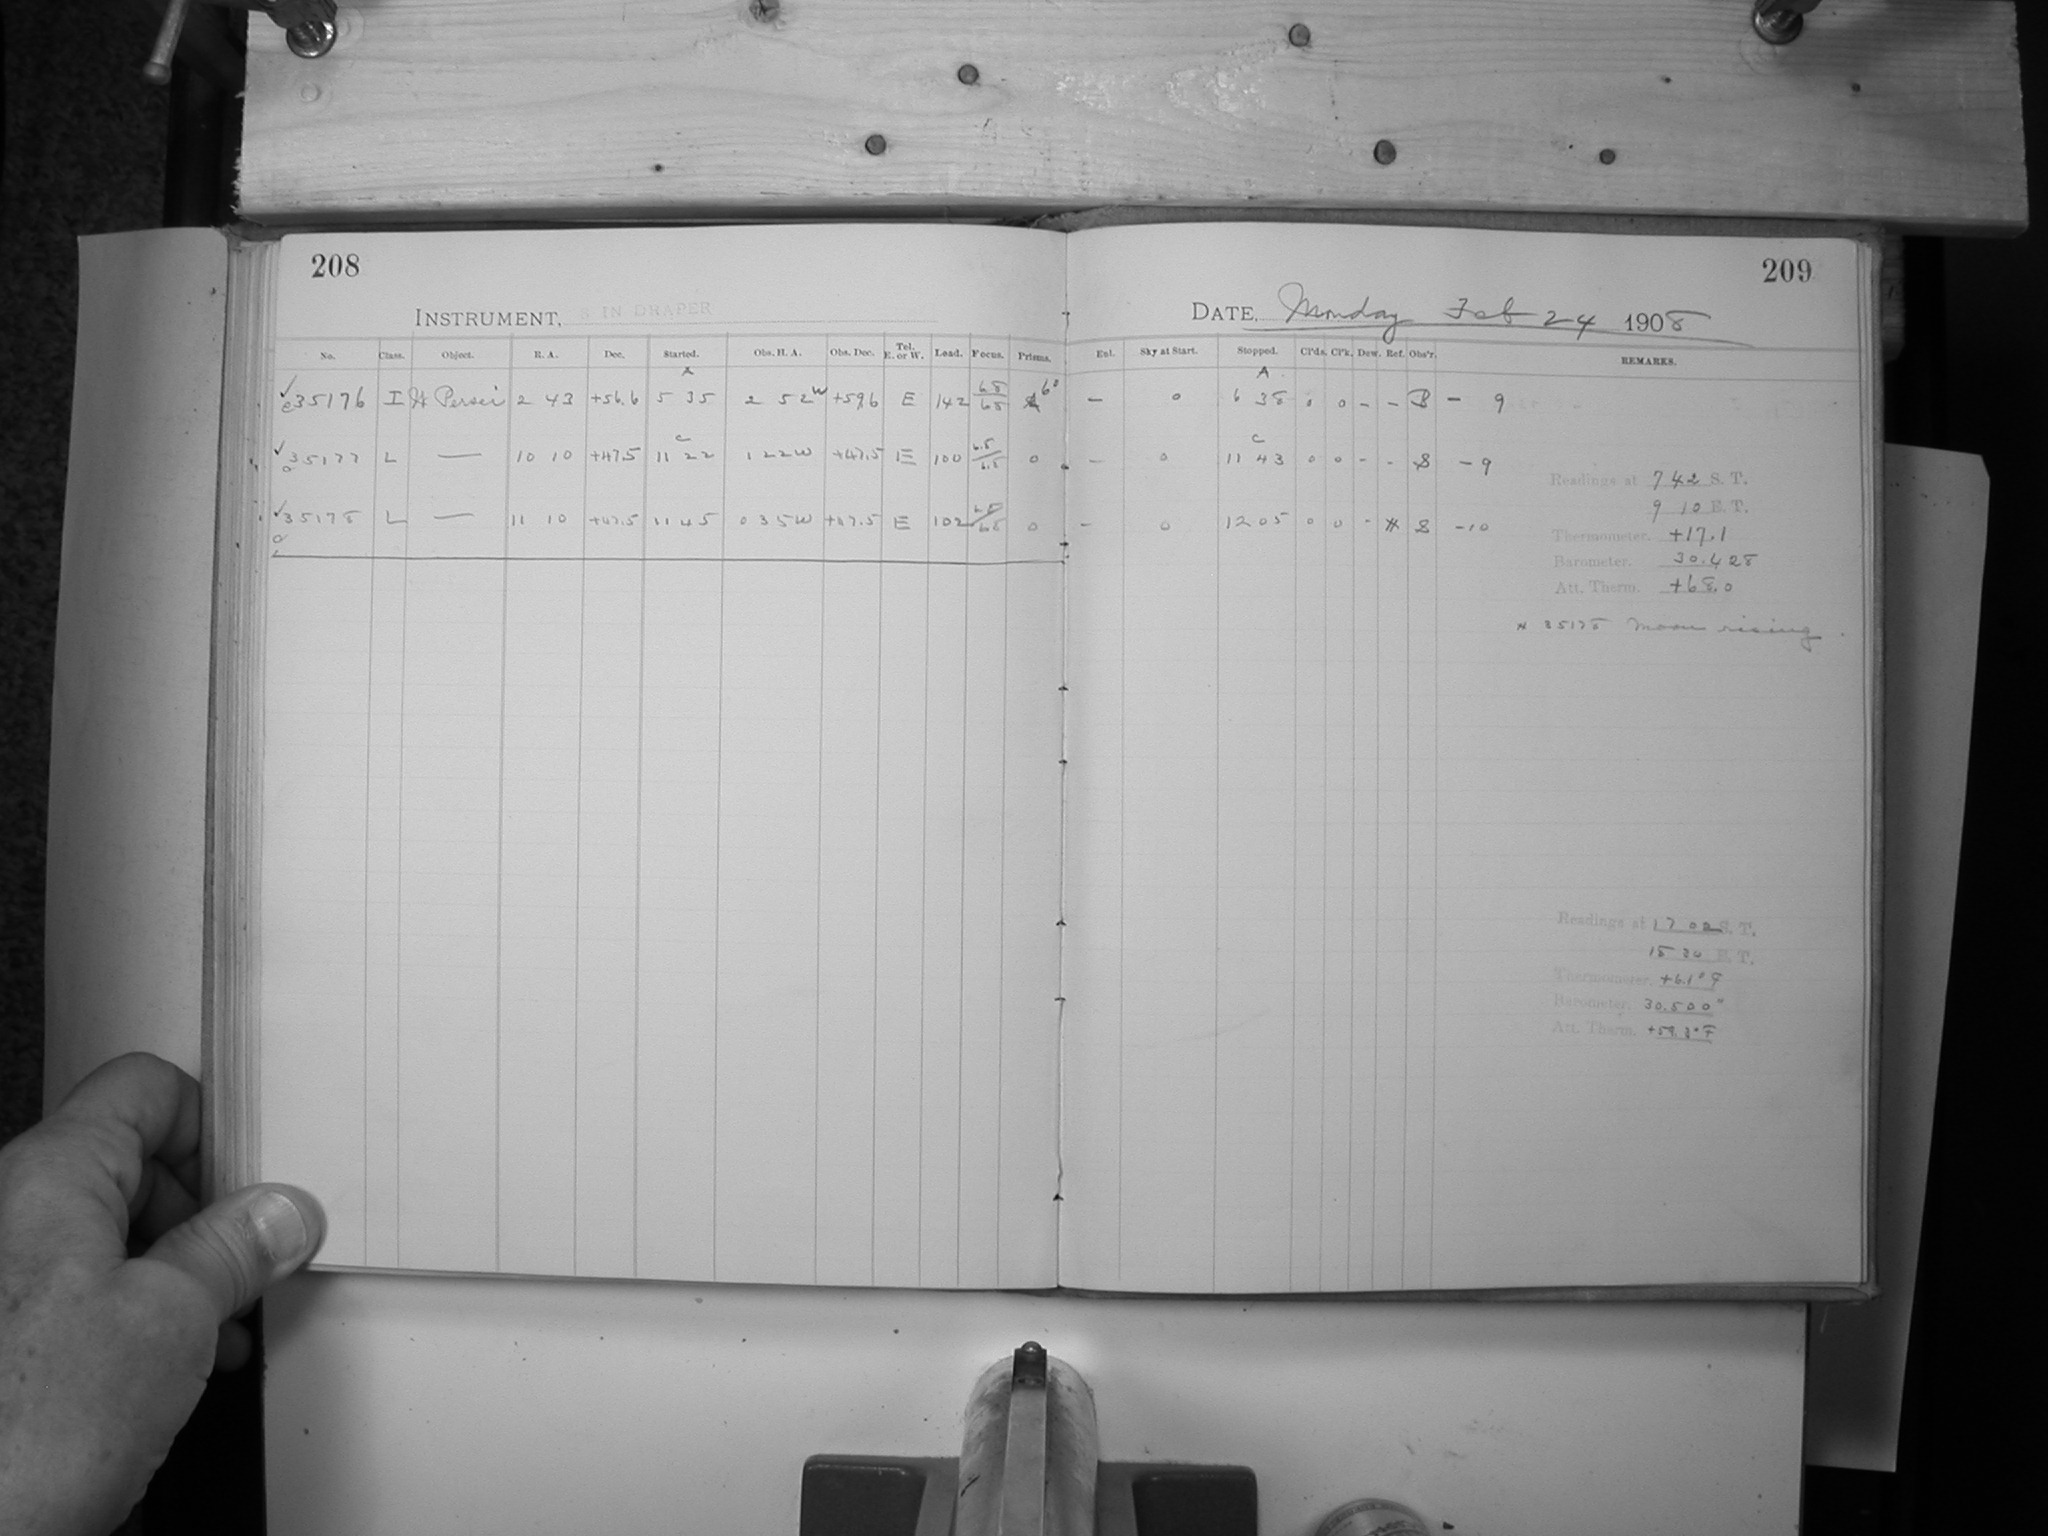 208
209
INSTRUMENT, 8 IN DRAPER
DATE, Monday Feb 24 1908
No. Class. Object. R. A. Dec. Started. Obs. H. A. Obs. Dec. Tel. E. or W. Load. Focus. Prisms. Enl. Sky at Start. Stopped. Cl'ds. Cl'k. Dew. Ref. Obs'r. REMARKS.
A A
✓ e 35176 I H Persei 2 43 +56.6 5 35 2 52 W +59.6 E 142 68/68 6° – 0 6 38 0 0 – – B – 9
c c
✓ a 35177 L — 10 10 +47.5 11 22 1 22 W +47.5 E 100 6.5/6.5 0 – 0 11 43 0 0 – – S – 9
✓ a 35178 L — 11 10 +47.5 11 45 0 35 W +47.5 E 102 68/68 0 – 0 12 05 0 0 – * S – 10
Readings at 7 42 S. T.
9 10 E. T.
Thermometer. +17.1
Barometer. 30.428
Att. Therm. +68.0
* 35178 Moon rising.
Readings at 17 02 S. T.
18 30 E. T.
Thermometer. +6.1° F
Barometer. 30.500"
Att. Therm. +59.3° F